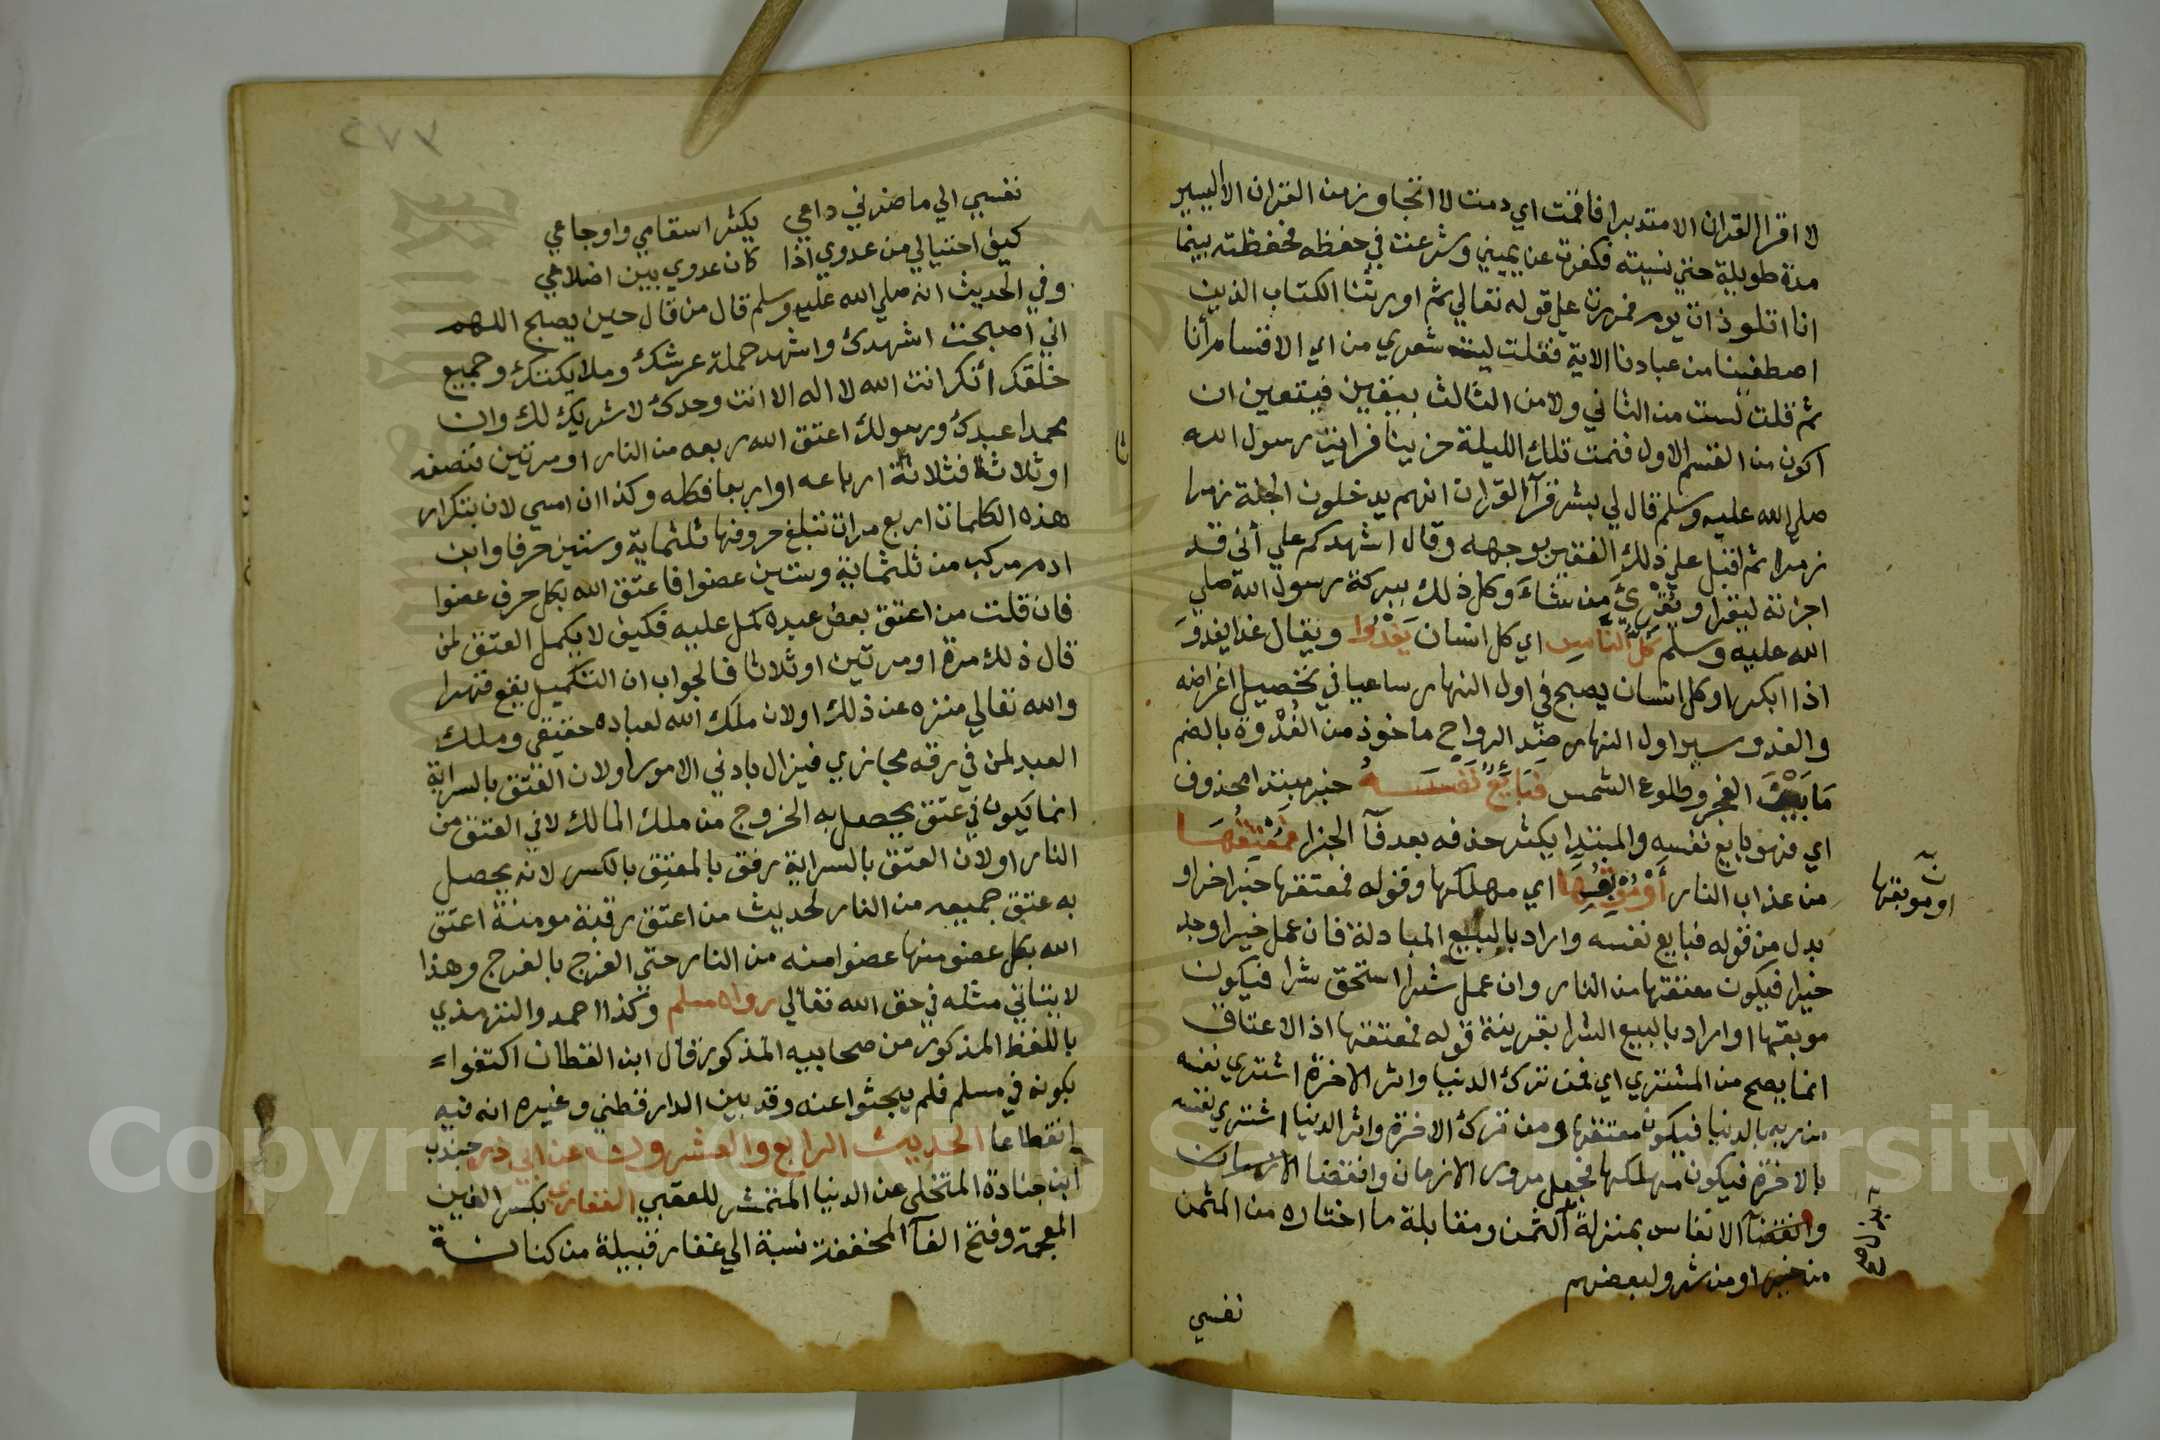 لا اقرا القران الا متدبرا فاقمت اي دمت لا اتجاوز من القران الا اليسير
مدة طويلة حتى نسيته فكفرت عن يميني وشرعت في حفظه فحفظته بينما
انا اتلو ذات يوم فمررت على قوله تعالي ثم اورثنا الكتاب الذين
اصطفينا من عبادنا الاية فقلت ليت شعري من اي الاقسام أنا
ثم قلت لست من الثاني ولا من الثالث بيقين فيتعين ان
اكون من القسم الاول فنمت تلك الليلة حزينا فرايت رسول الله
صلي الله عليه وسلم قال لي بشر قرآ القران انهم يدخلون الجنة زمرا
زمرا ثم اقبل علي ذلك الفقير بوجهه وقال اشهدكم علي أني قد
اجزته ليقرا ويقرئ من شاء وكل ذلك ببركة رسول الله صلي
الله عليه وسلم كل الناس اي كل انسان يغدوا ويقال غدا يغدو
اذا ابكر اي كل انسان يصبح في اول النهار ساعيا في تحصيل اغراضه
والغدو سير اول النهار ضد الرواح ماخوذ من الغدوة بالضم
ما بين الفجر وطلوع الشمس فبايع نفسه خبر مبتدا محذوف
اي فهو بايع نفسه والمبتدا يكثر حذفه بعد فآ الجزا فمعتقها
من عذاب النار او موبقها اي مهلكها وقوله فمعتقها خبر اخر او
بدل من قوله فبايع نفسه واراد بالبيع المبادلة فان عمل خيرا وجد
خيرا فيكون معتقها من النار وان عمل شرا استحق شرا فيكون
موبقها او اراد بالبيع الشرا بقرينة قوله فمعتقها اذ الاعتاق
انما يصح من المشتري اي فمن ترك الدنيا واثر الاخرة اشتري نفسه
من ربه بالدنيا فيكون معتقها ومن ترك الاخرة واثر الدنيا اشتري نفسه
بالاخرة فيكون مهلكها فجعل مرور الازمان وانقضا الازمان
وانقضآ الانفاس بمنزلة الثمن ومقابلة ما اختاره من المثمن
من خير او من شر ولبعضهم
نفسي
او موبقها
نفسي الي ما ضرني داعي يكثر اسقامي واوجاعي
كيف احتيالي من عدوي اذا كان عدوي بين اضلاعي
وفي الحديث انه صلي الله عليه وسلم قال من قال حين يصبح اللهم
اني اصبحت اشهدك واشهد حملة عرشك وملايكتك وجميع
خلقك أنك انت الله لا اله الا انت وحدك لا شريك لك وان
محمدا عبدك ورسولك اعتق الله ربعه من النار او مرتين فنصفه
او ثلاثة فثلاثة ارباعه او اربعا فكله وكذا ان امسي لان بتكرار
هذه الكلمات اربع مرات تبلغ حروفها ثلثماية وستين حرفا وابن
ادم مركب من ثلثماية وستين عضوا فاعتق الله بكل حرف عضوا
فان قلت من اعتق بعض عبده كمل عليه فكيف لا يكمل العتق لمن
قال ذلك مرة او مرتين او ثلاثا فالجواب ان التكميل يقع قهرا
والله تعالي منزه عن ذلك او لان ملك الله لعباده حقيقي وملك
العبد لمن في رقه مجازي فيزال بادني الامور او لان العتق بالسراية
انما يكون في عتق يحصل به الخروج من ملك المالك لا في العتق من
النار او لان العتق بالسراية رفق بالمعتق بالكسر لانه يحصل
به عتق جميعه من النار لحديث من اعتق رقبة مومنة اعتق
الله بكل عضو منها عضوا منه من النار حتي الفرج بالفرج وهذا
لا يتاتي مثله في حق الله تعالي رواه مسلم وكذا احمد والترمذي
باللفظ المذكور من صحابيه المذكور قال ابن القطان اكتفوا
بكونه في مسلم فلم يبحثوا عنه وقد بين الدارقطني وغيره انه فيه
انقطاعا الحديث الرابع والعشرون عن ابي ذر جندب
ابن جنادة المتخلي عن الدنيا المتشمر للعقبي الغفاري بكسر الغين
المعجمة وفتح الفآ المخففة نسبة الي غفار قبيلة من كنانة
٢٧٣
Copyright © King Saud University